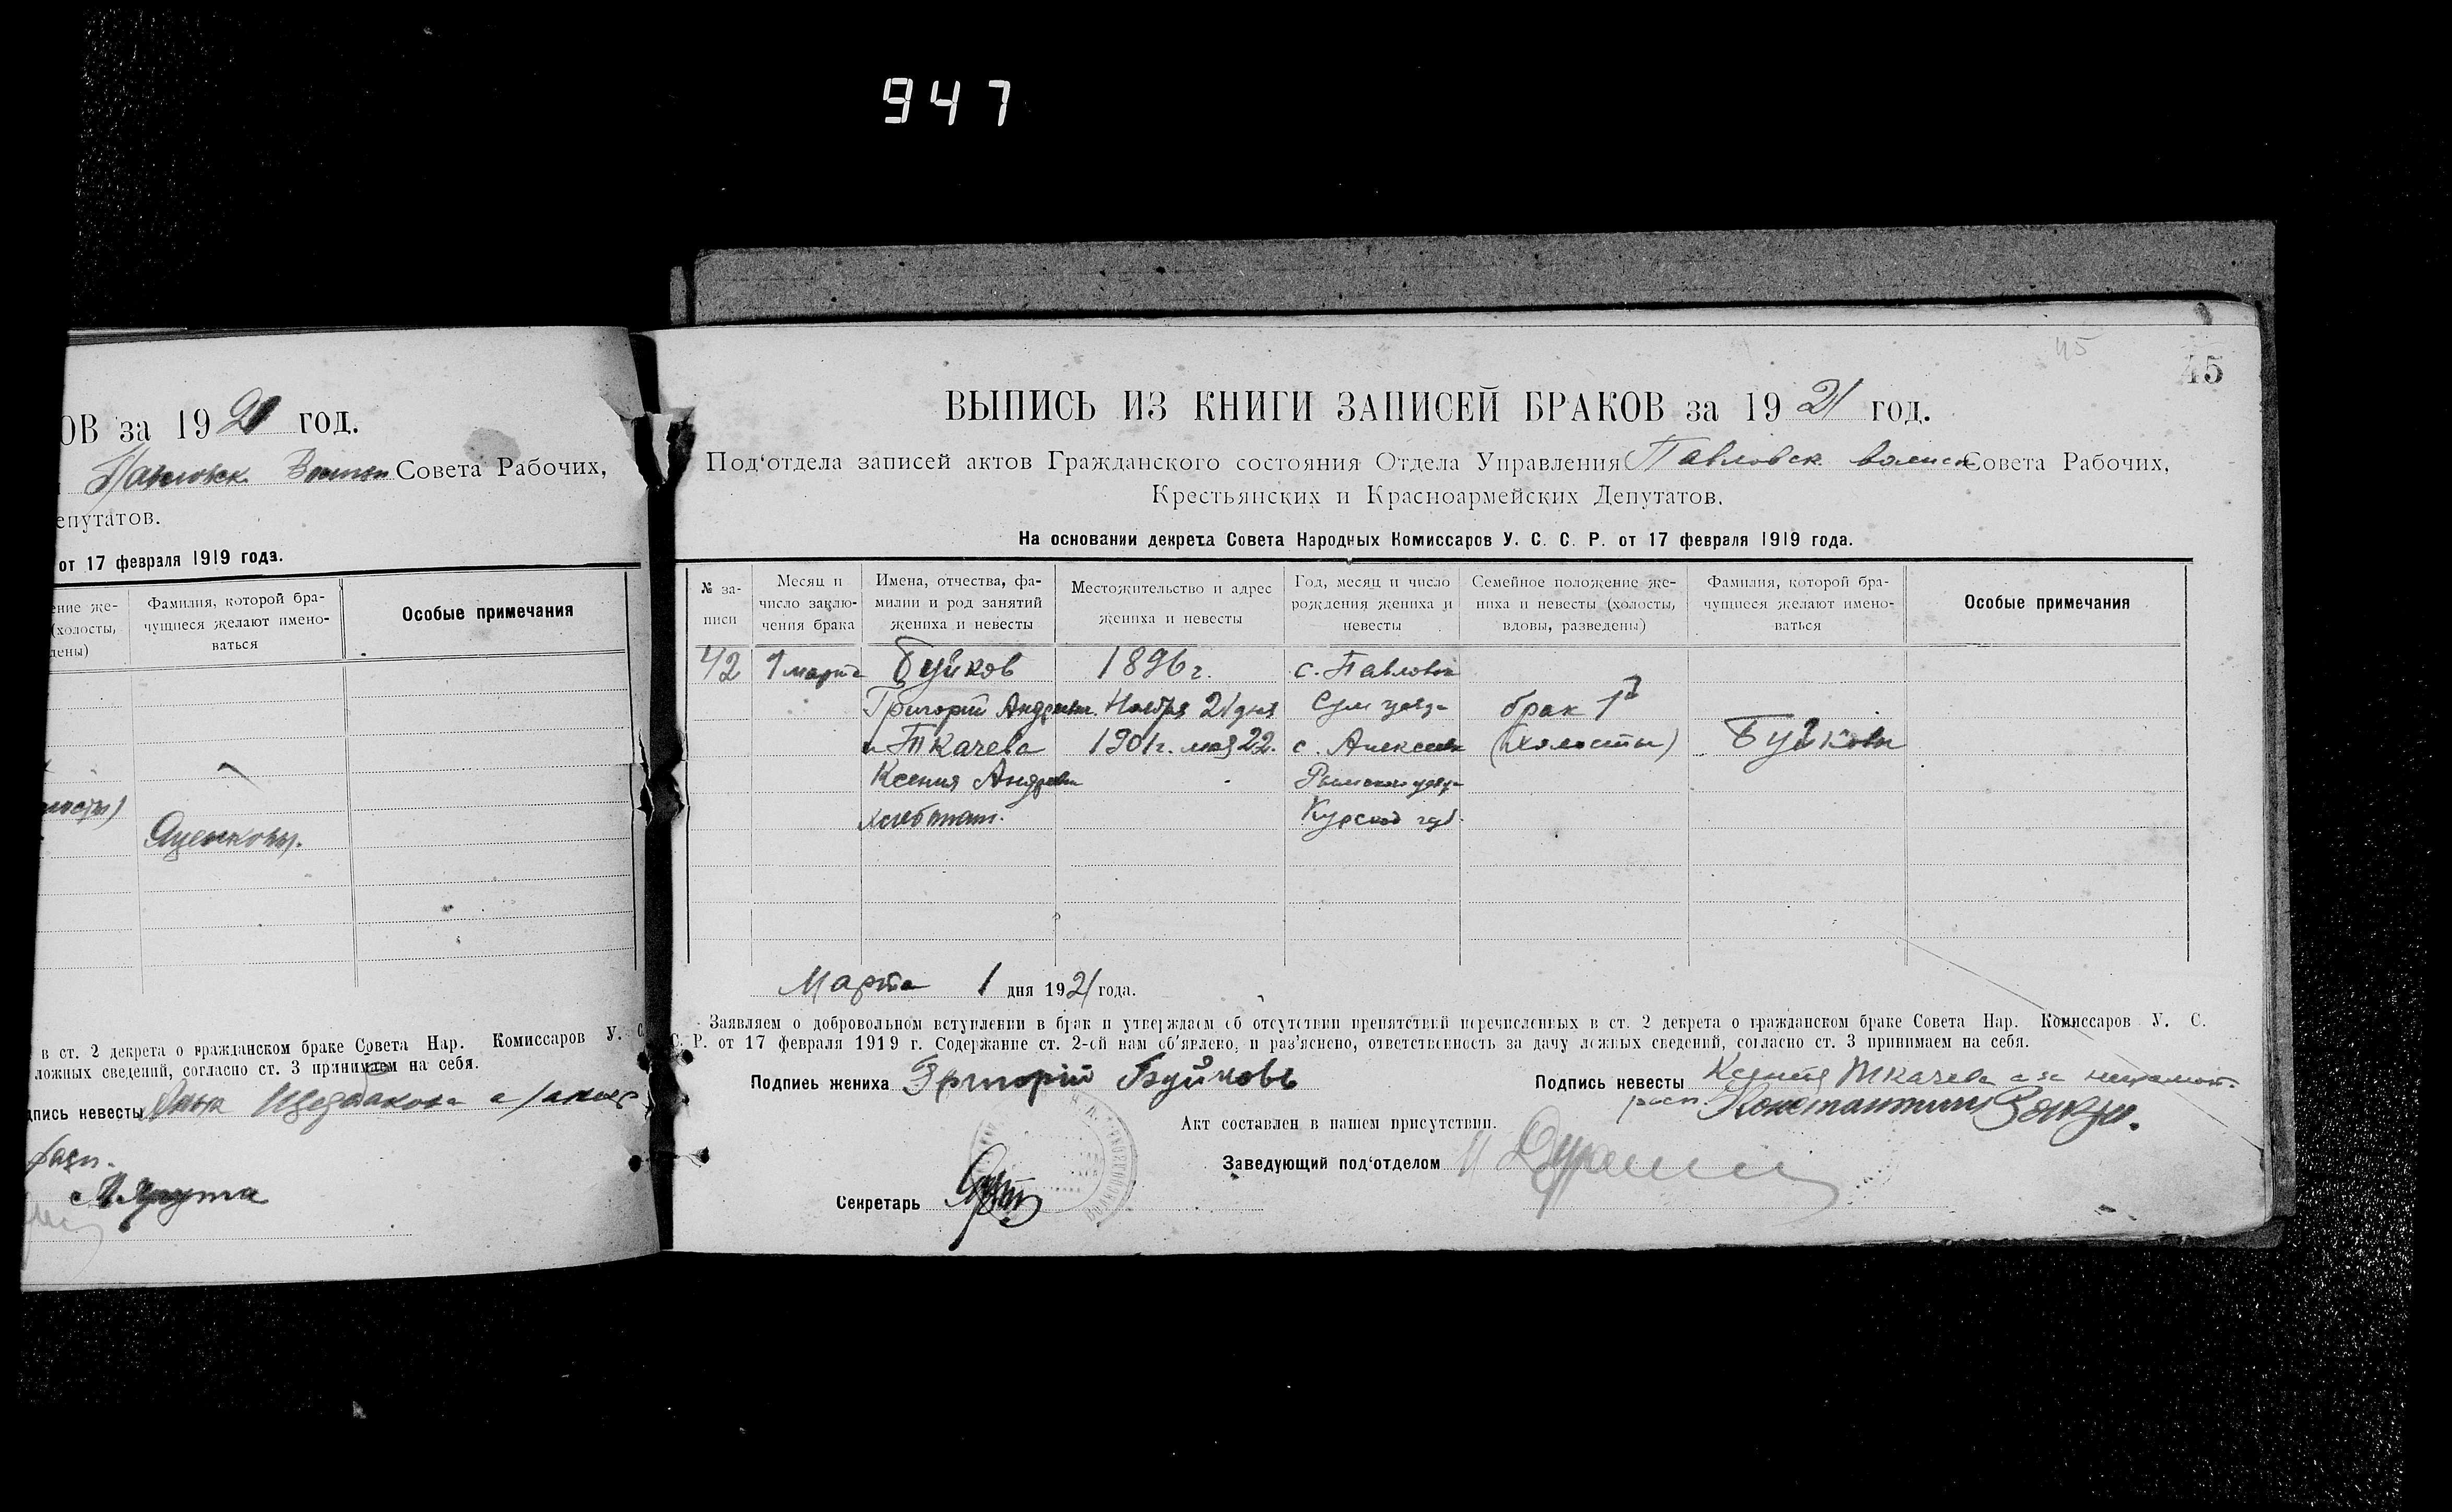 947
ОВ за 1920 год.
Павловск. Совета Рабочих,
епутатов.
от 17 февраля 1919 года.
ение же-
(холосты,
дены)
Фамилия, которой бра-
чущиеся желают имено-
ваться
Особые примечания
лосты)
Яценковы.
в ст. 2 декрета о гражданском браке Совета Нар. Комиссаров У. С.
ложных сведений, согласно ст. 3 принимаем на себя.
дпись невесты
45
45
ВЫПИСЬ ИЗ КНИГИ ЗАПИСЕЙ БРАКОВ за 1921 год.
Под'отдела записей актов Гражданского состояния Отдела Управления Павловск. волисп Совета Рабочих,
Крестьянских и Красноармейских Депутатов.
На основании декрета Совета Народных Комиссаров У. С. С. Р. от 17 февраля 1919 года.
№ за-
писи
Месяц и
число заклю-
чения брака
Имена, отчества, фа-
милии и род занятий
жениха и невесты
Местожительство и адрес
жениха и невесты
Год, месяц и число
рождения жениха и
невесты
Семейное положение же-
ниха и невесты (холосты,
вдовы, разведены)
Фамилия, которой бра-
чущиеся желают имено-
ваться
Особые примечания
42 1 марта Буйков 1896 г. с. Павловка
Григорий Андреевич. Ноября 21 дня Сум уезда брак 1й
и Ткачева 1901 г. мая 22. с. Алексеевк (холосты) Буйковы
Ксения Андреевн Рыльского уезда
хлебопаш. Курской губ.
Марта 1 дня 1921 года.
Заявляем о добровольном вступлении в брак и утверждаем об отсутствии препятствий перечисленных в ст. 2 декрета о гражданском браке Совета Нар. Комиссаров У. С.
С. Р. от 17 февраля 1919 г. Содержание ст. 2-ой нам об'явлено, и раз'яснено, ответственность за дачу ложных сведений, согласно ст. 3 принимаем на себя.
Подпись жениха Григорій Буйковъ
Подпись невесты Ксения Ткачева а за неграмот.
расп. Константин
Акт составлен в нашем присутствии.
Заведующий под'отделом
Секретарь